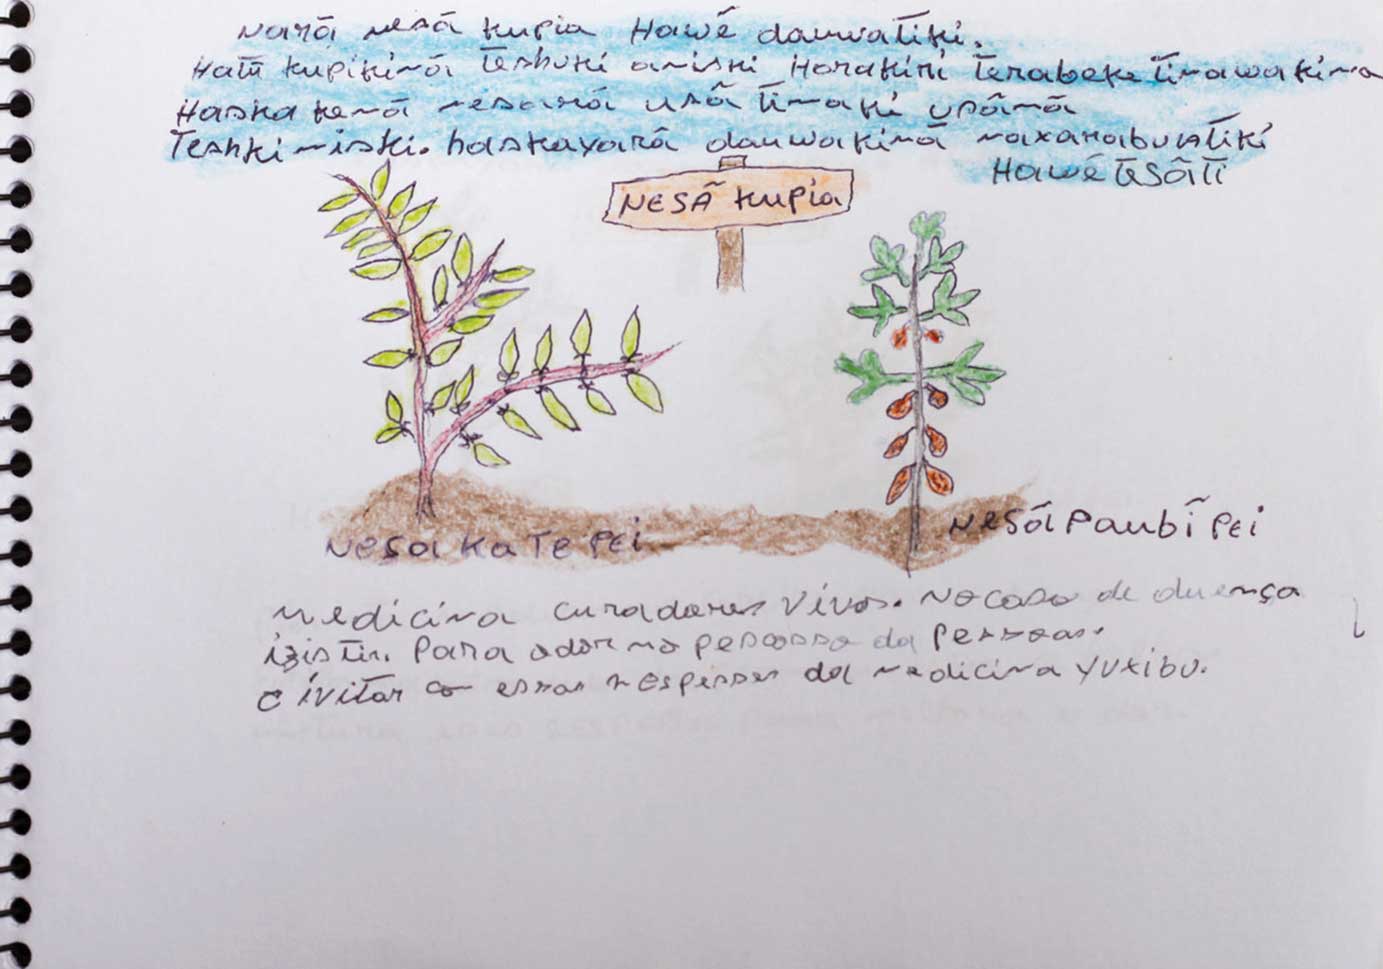 Narã nesã kupia Hawẽ dauwatiki.
Hatũ kupikinã Teshuki aniski Horakiri Terabeke tinawakina
Haska kenã nesanã usã tinaki usãnã
Teshki niski. haskayarã dauwakinã naxanabuatiki
Hawẽ Tesãti
NESÃ kupia
Nesa Ka Te Pei
Nesã Paubĩ Pei
Medicina curadores vivos. No caso de duença
izistir. Para ador no pescosso da Pessoas.
e ivitar co essas da medicina Yuxibu.